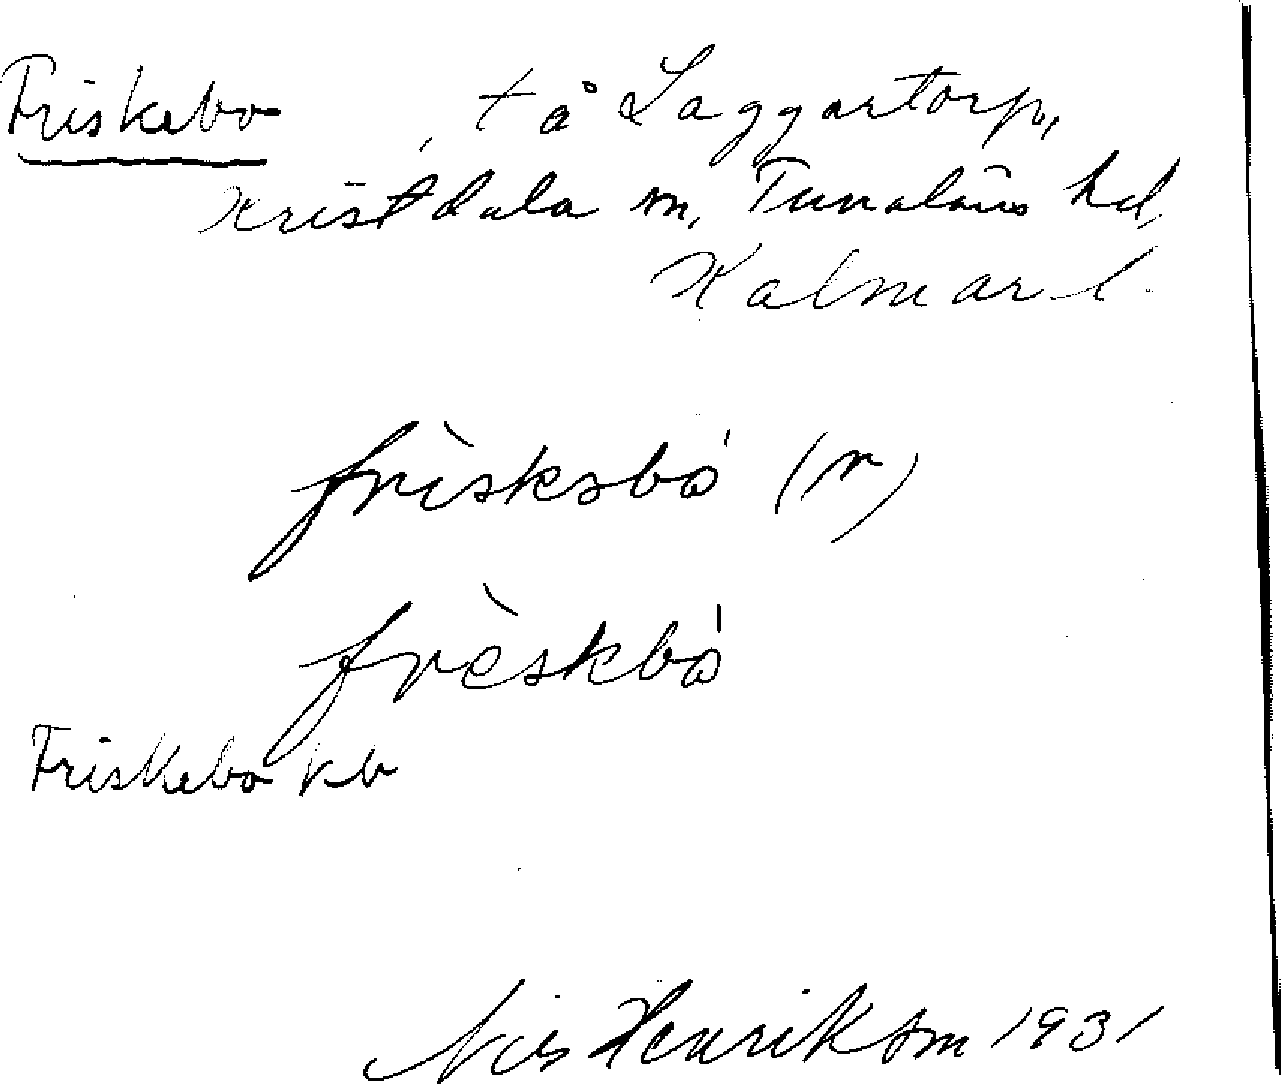 Friskebo, t å Laggartorp,
Kristdala sn, Tunaläns hd,
Kalmar l.
frìskəbó (r)
frèskbó
Friskebo kb
Nils Henriksson 1931